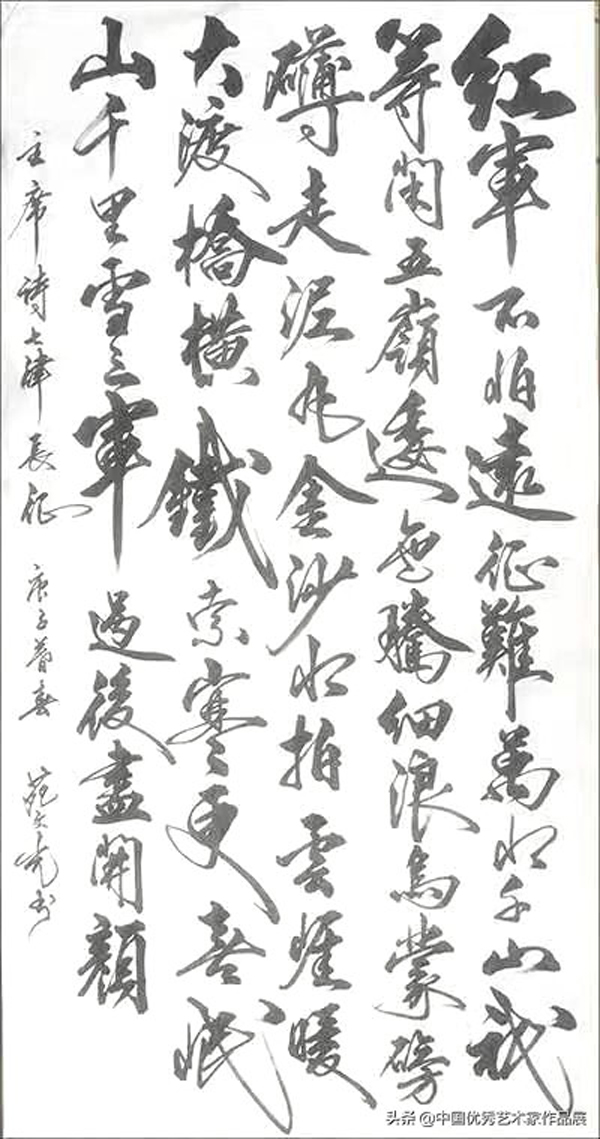 红軍不怕遠征難萬水千山祇
等閑五嶺逶迤騰細浪烏蒙磅
礴走泥丸金沙水拍雲崖暖
大渡橋横鐵索寒更喜岷
山千里雪三軍過後盡開顔
主席诗七律長征 庚子暮春 文光书
头条 @中国优秀艺术家作品展